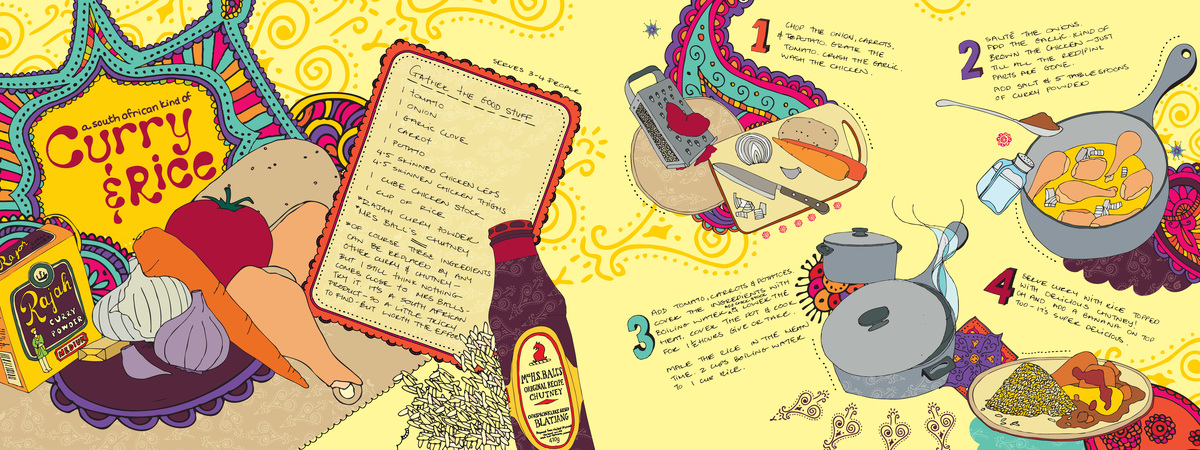 a south african kind of
Curry
& Rice
Rajah
Rajah
CURRY
POWDER
MEDIUM
SERVES 3-4 PEOPLE
GATHER THE GOOD STUFF
1 TOMATO
1 ONION
1 GARLIC CLOVE
1 CARROT
1 POTATO
4-5 SKINNED CHICKEN LEGS
4-5 SKINNEN CHICKEN THIGHS
1 CUBE CHICKEN STOCK
1 CUP OF RICE
*RAJAH CURRY POWDER
*MRS BALL'S CHUTNEY
*OF COURSE THESE INGREDIENTS
CAN BE REPLACED BY ANY
OTHER CURRY & CHUTNEY -
BUT I STILL THINK NOTHING
COMES CLOSE TO MRS BALLS.
TRY IT. IT'S A SOUTH AFRICAN
PRODUCT - SO A LITTLE TRICKY
TO FIND - BUT WORTH THE EFFORT
MRS H.S. BALL'S
ORIGINAL RECIPE
CHUTNEY
OORSPRONKLIKE RESEP
BLATJANG
470g
1
CHOP THE ONION, CARROTS,
& POTATO. GRATE THE
TOMATO. CRUSH THE GARLIC.
WASH THE CHICKEN.
2
SAUTÉ THE ONIONS.
ADD THE GARLIC. KIND OF
BROWN THE CHICKEN - JUST
TILL ALL THE RED/PINK
PARTS ARE GONE.
ADD SALT & 5 TABLESPOONS
OF CURRY POWDER
3
ADD TOMATO, CARROTS & POTATOES.
COVER THE INGREDIENTS WITH
BOILING WATER. COVER THE
HEAT. COVER THE POT & COOK
FOR 1½ HOURS GIVE OR TAKE.
MAKE THE RICE IN THE MEAN
TIME. 2 CUPS BOILING WATER
TO 1 CUP RICE.
4
SERVE CURRY WITH RICE TOPPED
WITH DELICIOUS CHUTNEY!
OH AND ADD A BANANA ON TOP
TOO - IT'S SUPER DELICIOUS.